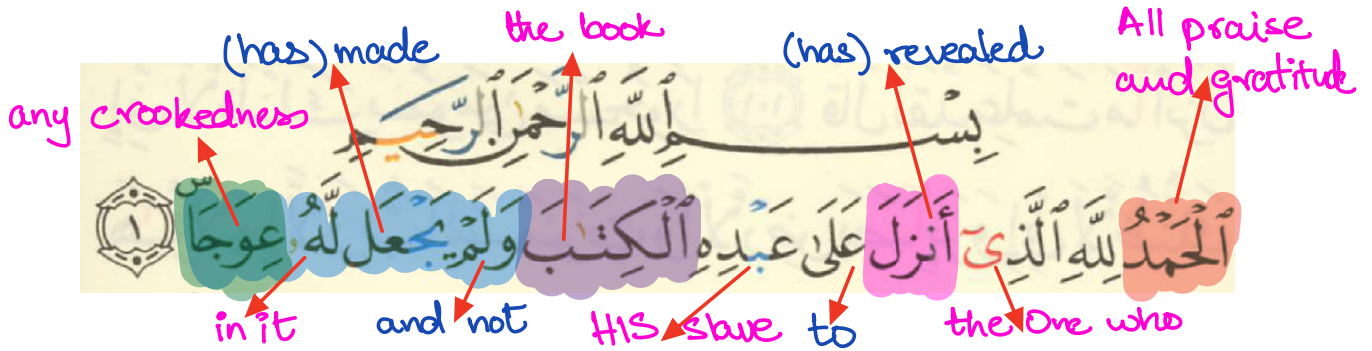 (has) made the book (has) revealed All praise and gratitude
any crookedness
بِسْمِ ٱللَّهِ ٱلرَّحْمَٰنِ ٱلرَّحِيمِ
ٱلْحَمْدُ لِلَّهِ ٱلَّذِىٓ أَنزَلَ عَلَىٰ عَبْدِهِ ٱلْكِتَٰبَ وَلَمْ يَجْعَل لَّهُۥ عِوَجَاۜ ١
in it and not HIS slave to the One who